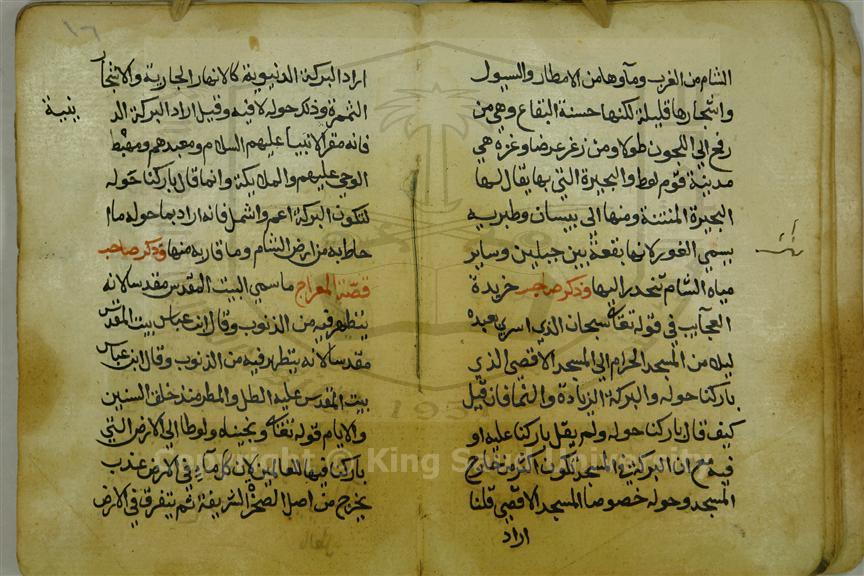 الشام من الغرب ومآوها من الامطار والسيول
واشجارها قليلة لكنها حسنة البقاع وهي من
رفح الي اللجون طولا ومن زغر عرضا وغزة هي
مدينة قوم لوط والبحيرة التي بها يقال لها
البحيرة المنتنة ومنها الى بيسان وطبريه
يسمي الغور لانها بقعة بين جبلين وساير
مياه الشام تنحدر اليها وذكر صاحب خريدة
العجآيب في قوله تعالى سبحان الذي اسري بعبده
ليلا من المسجد الحرام الي المسجد الاقصى الذي
باركنا حوله والبركة الزيادة والنما فان قيل
كيف قال باركنا حوله ولم يقل باركنا عليه او
فيه مع ان البركة في المسجد تكون اكثر من خارج
المسجد وحوله خصوصا المسجد الاقصي قلنا
اراد
١٦
اراد البركة الدنيوية كالانهار الجارية والاشجار
المثمرة وذكر حوله لا فيه وقيل اراد البركة الد
ينية
فانه مقر الانبيا عليهم السلام ومعبدهم ومهبط
الوحي عليهم والملايكة وانما قال باركنا حوله
لتكون البركة اعم واشمل فانه اراد بما حوله ما ا
حاط به من ارض الشام وما قاربه منها وذكر صاحب
قصة المعراج ما سمي البيت المقدس مقدسا لانه
يتطهر فيه من الذنوب وقال ابن عباس بيت المقدس
مقدسا لانه يتطهر فيه من الذنوب وقال ابن عباس
بيت المقدس عليه الطل والمطر منذ خلق السنين
والايام قوله تعالى ونجيناه ولوطا الي الارض التي
باركنا فيها للعالمين لان كل مآء في الارض عذب
يخرج من اصل الصخرة الشريفة ثم يتفرق في الارض
Copyright © King Saud University
195